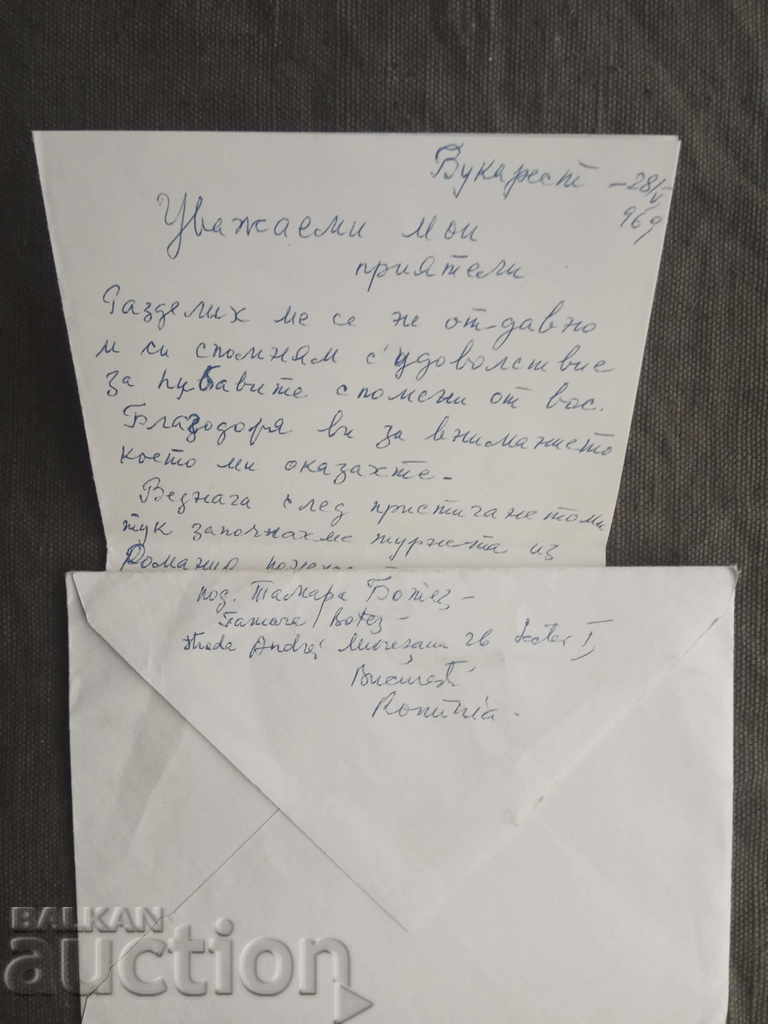 Букарест – 28/V
969
Уважаеми мои
приятели
Разделих ме се не от-давно
и си спомням с удоволствие
за хубавите спомени от вас.
Благодоря ви за вниманието
което ми оказахте –
Веднага след пристигането ми
тук започнахме турнета из
под. Тамара Ботез –
Tamara Botez –
Strada Andrei Mureşanu 2B Sector I,
București
România –
BALKAN
auction